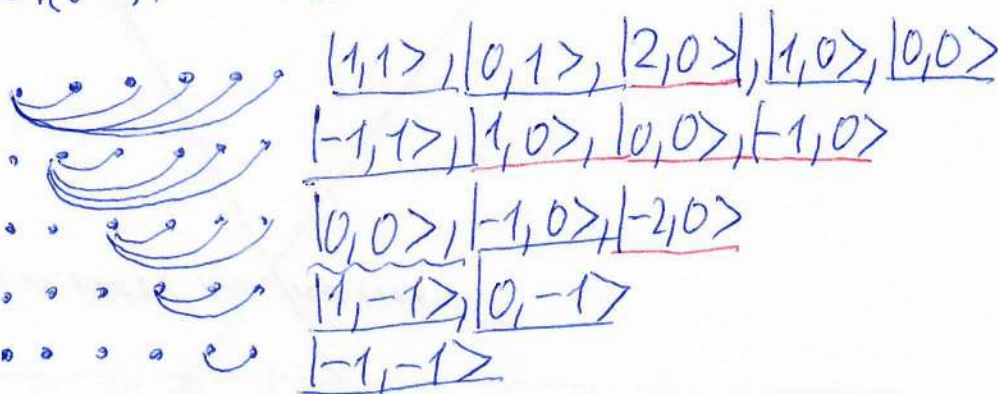 |1,1>, |0,1>, |2,0>, |1,0>, |0,0>
|-1,1>, |1,0>, |0,0>, |-1,0>
|0,0>, |-1,0>, |-2,0>
|1,-1>, |0,-1>
|-1,-1>